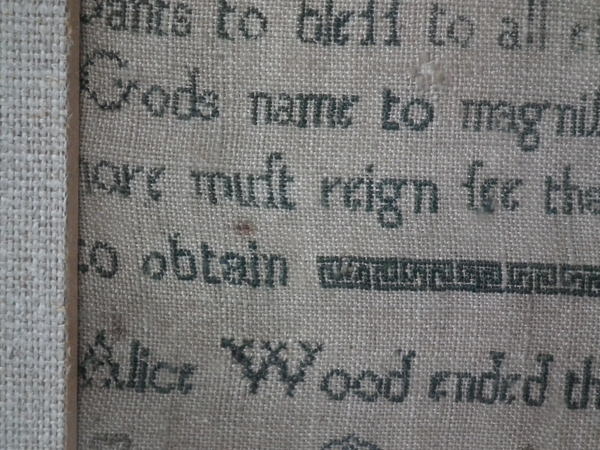 pants to bleſſ to all
Gods name to magnif
more muſt reign ſee the
to obtain
Alice Wood ended th